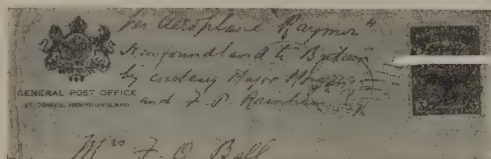 per Aeroplane "Raymor"
Newfoundland to Britain
by courtesy Major Morgan
and F. P. Raynham
GENERAL POST OFFICE
ST. JOHN'S, NEWFOUNDLAND
Mrs F. O. Bell